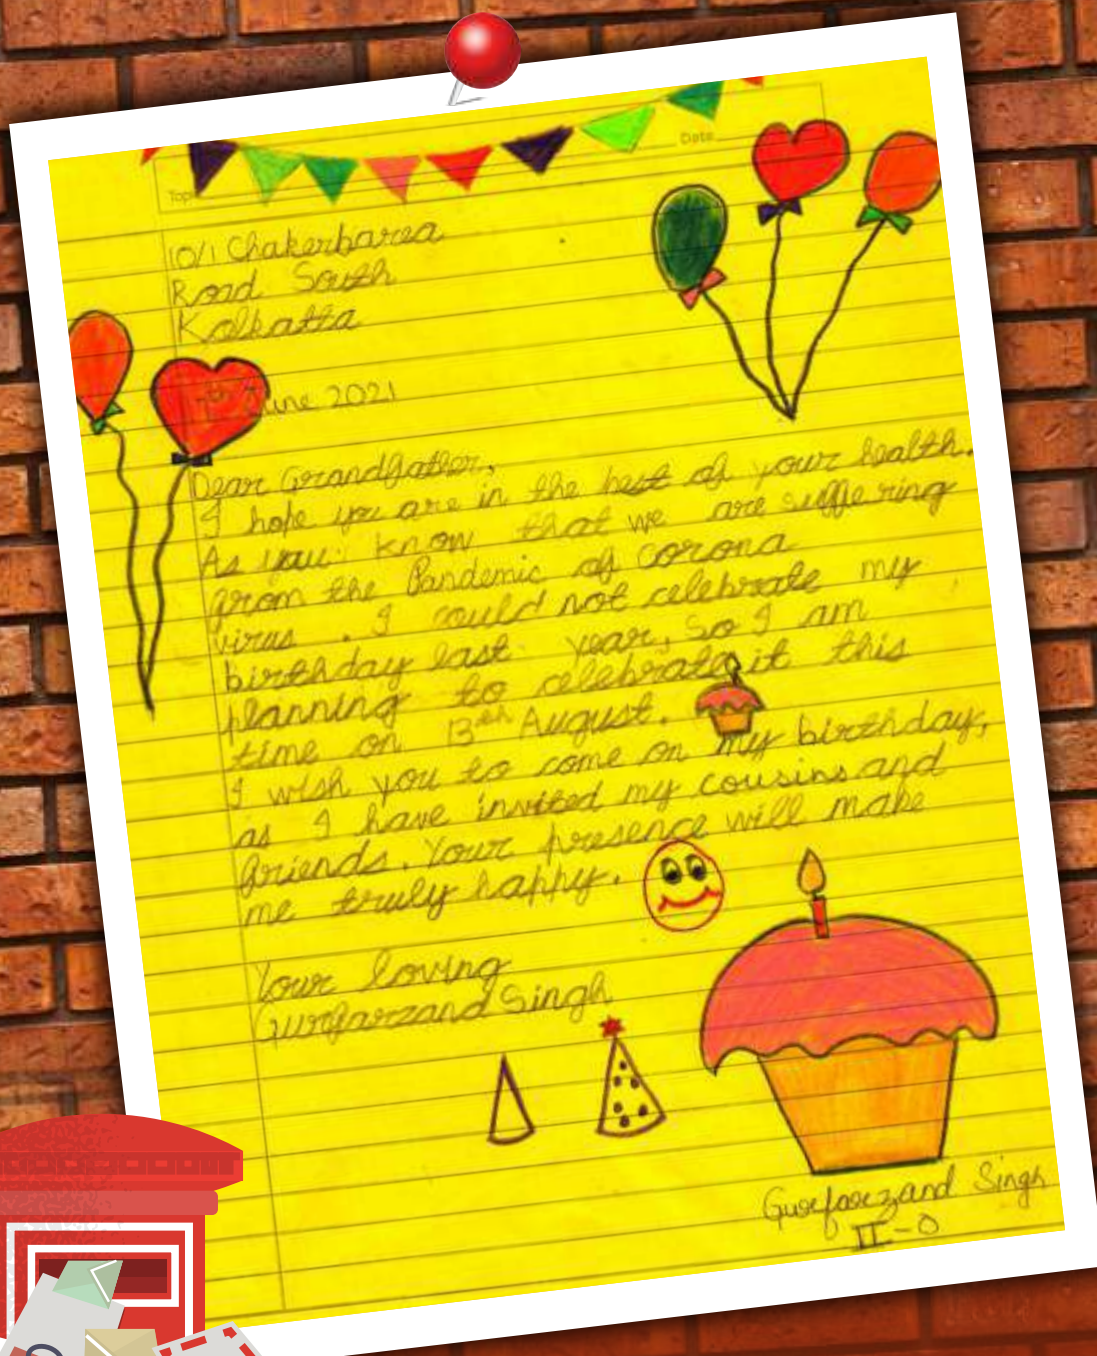 Date
10/1 Chakerbarea
Road South
Kolkatta
7th June 2021
Dear Grandfather,
I hope you are in the best of your health.
As you know that we are suffering
from the Pandemic of corona
virus . I could not celebrate my
birthday last year, so I am
planning to celebrate it this
time on 13th August.
I wish you to come on my birthday,
as I have invited my cousins and
friends. Your presence will make
me truly happy.
Your loving
Gurfarzand Singh
Gurfarzand Singh
II-O